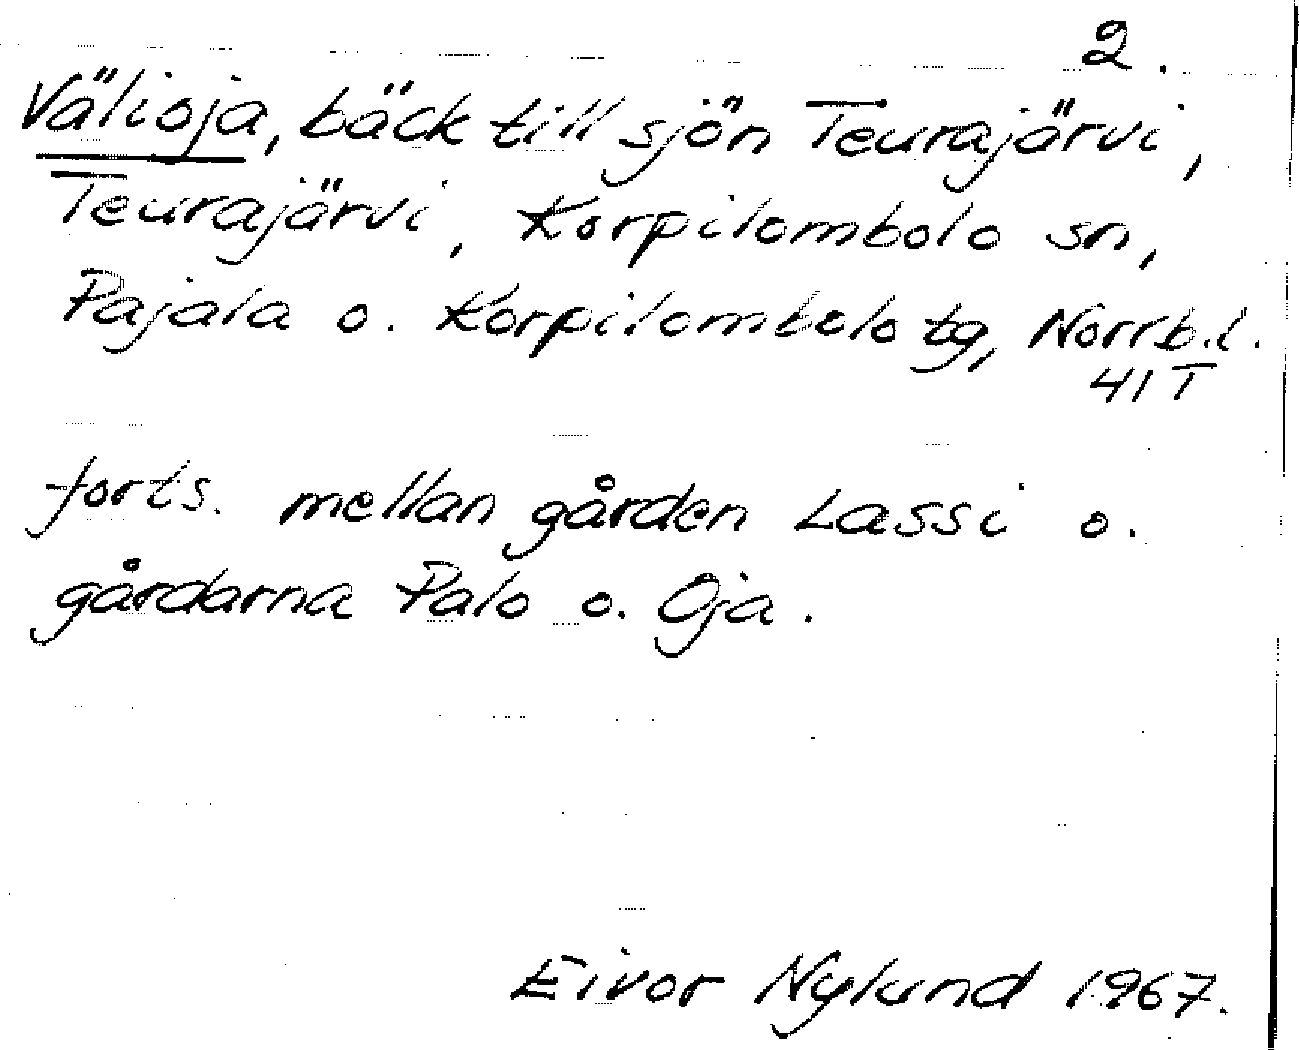 2.
Välioja, bäck till sjön Teurajärvi,
Teurajärvi, Korpilombolo sn,
Pajala o. Korpilombolo tg, Norrb.l.
41 T
forts. mellan gården Lassi o.
gårdarna Palo o. Oja.
Eivor Nylund 1967.